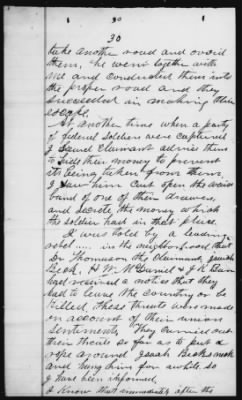 30
30
take another road and avoid
them, he went together with
me and conducted them into
the proper road and they
succeeded in making their
escape.
At another time when a party
of federal soldiers were captured
I saw Claimant advise them
to hide their money to prevent
its being taken from them,
I saw him cut open the waist
band of one of their drawers,
and secrete the money which
the soldier had in that place.
I was told by a leading
rebel ..... in the neighborhood that
Dr Thomason the Claimant, Josiah
Beck, H W. McDaniel & J R
had received a notice that they
had to leave the country or be
killed, these threats were made
on account of their union
sentiments, They carried out
their threats so far as to put a
rope around Josiah Becks neck
and hung him for awhile so
I have been informed.
I know that immediately after the